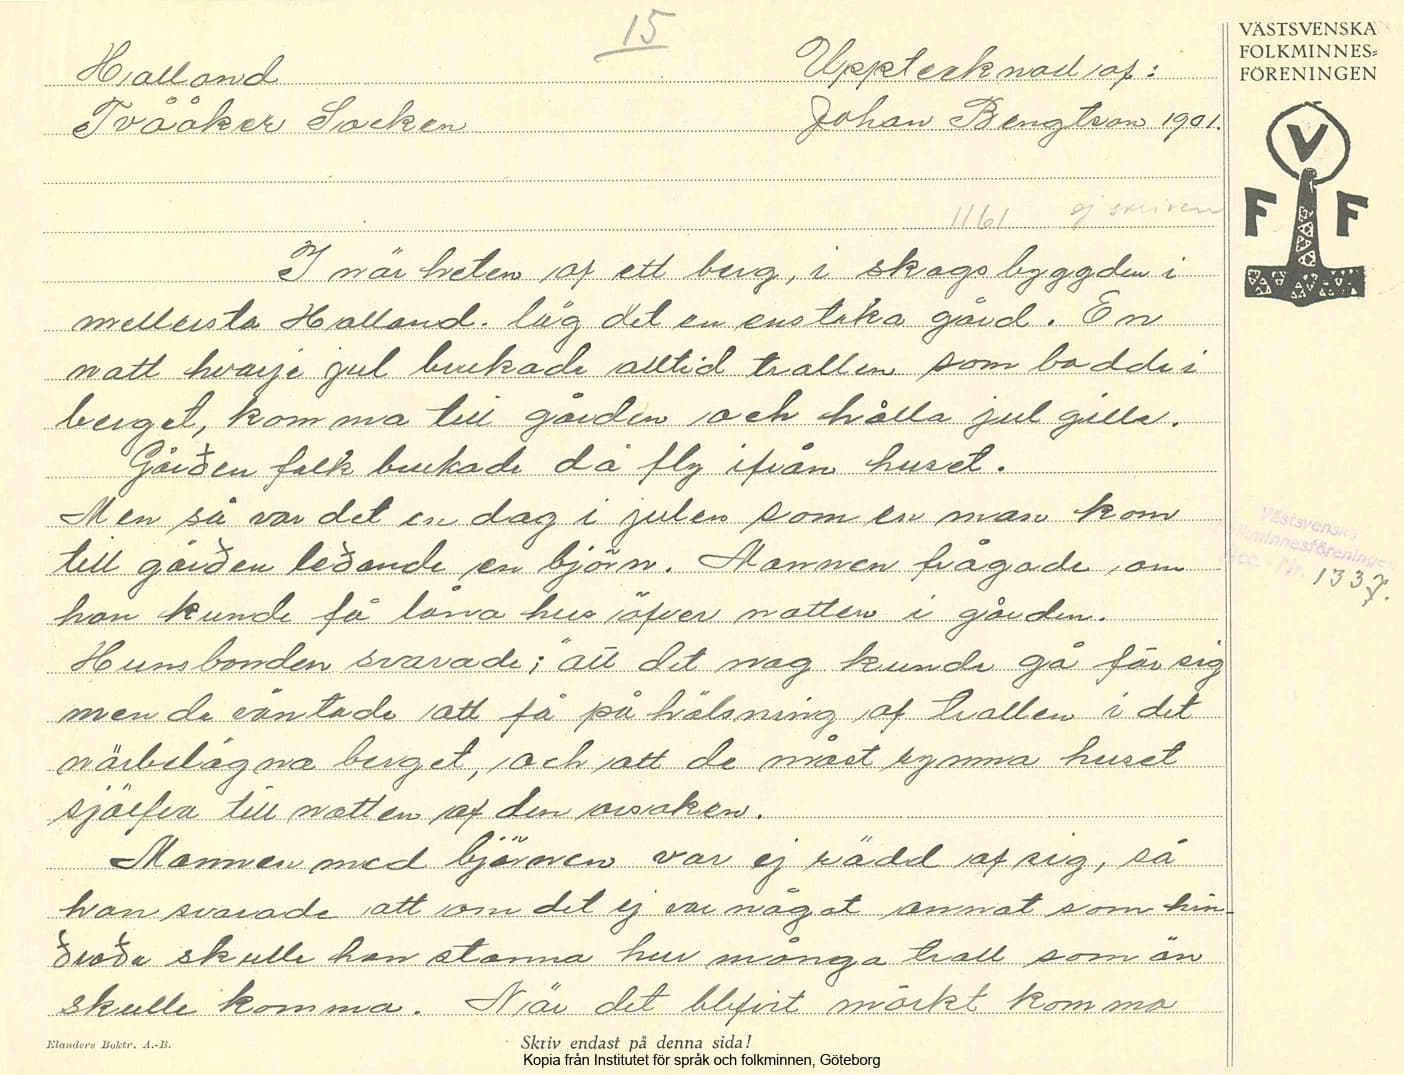 15
VÄSTSVENSKA
FOLKMINNES=
FÖRENINGEN
V
F F
Halland
Upptecknad af:
Tvååker Socken
Johan Bengtson 1901.
1161 ej skriven
I närheten af ett berg, i skogsbyggden i
mellersta Halland. låg det en enstaka gård. En
natt hvarje jul brukade alltid trollen som bodde i
berget, komma till gården och hålla jul gille.
Gården folk brukade då fly ifrån huset.
Men så var det en dag i julen som en man kom
till gården ledande en björn. Mannen frågade om
han kunde få låna hus öfver natten i gården.
Hunsbonden svarade; "att det nog kunde gå för sig
men de väntade att få påhälsning af trollen i det
närbelägna berget, och att de måst rymma huset
sjelfva till natten af den orsaken.
Mannen med björnen var ej rädd af sig, så
han svarade att om det ej var något annat som hin-
drade skulle han stanna hur många troll som än
skulle komma. När det blifvit mörkt komma
Västsvenska
Folkminnesföreningen
Acc. - Nr. 1337.
Elanders Boktr. A.-B.
Skriv endast på denna sida!
Kopia från Institutet för språk och folkminnen, Göteborg